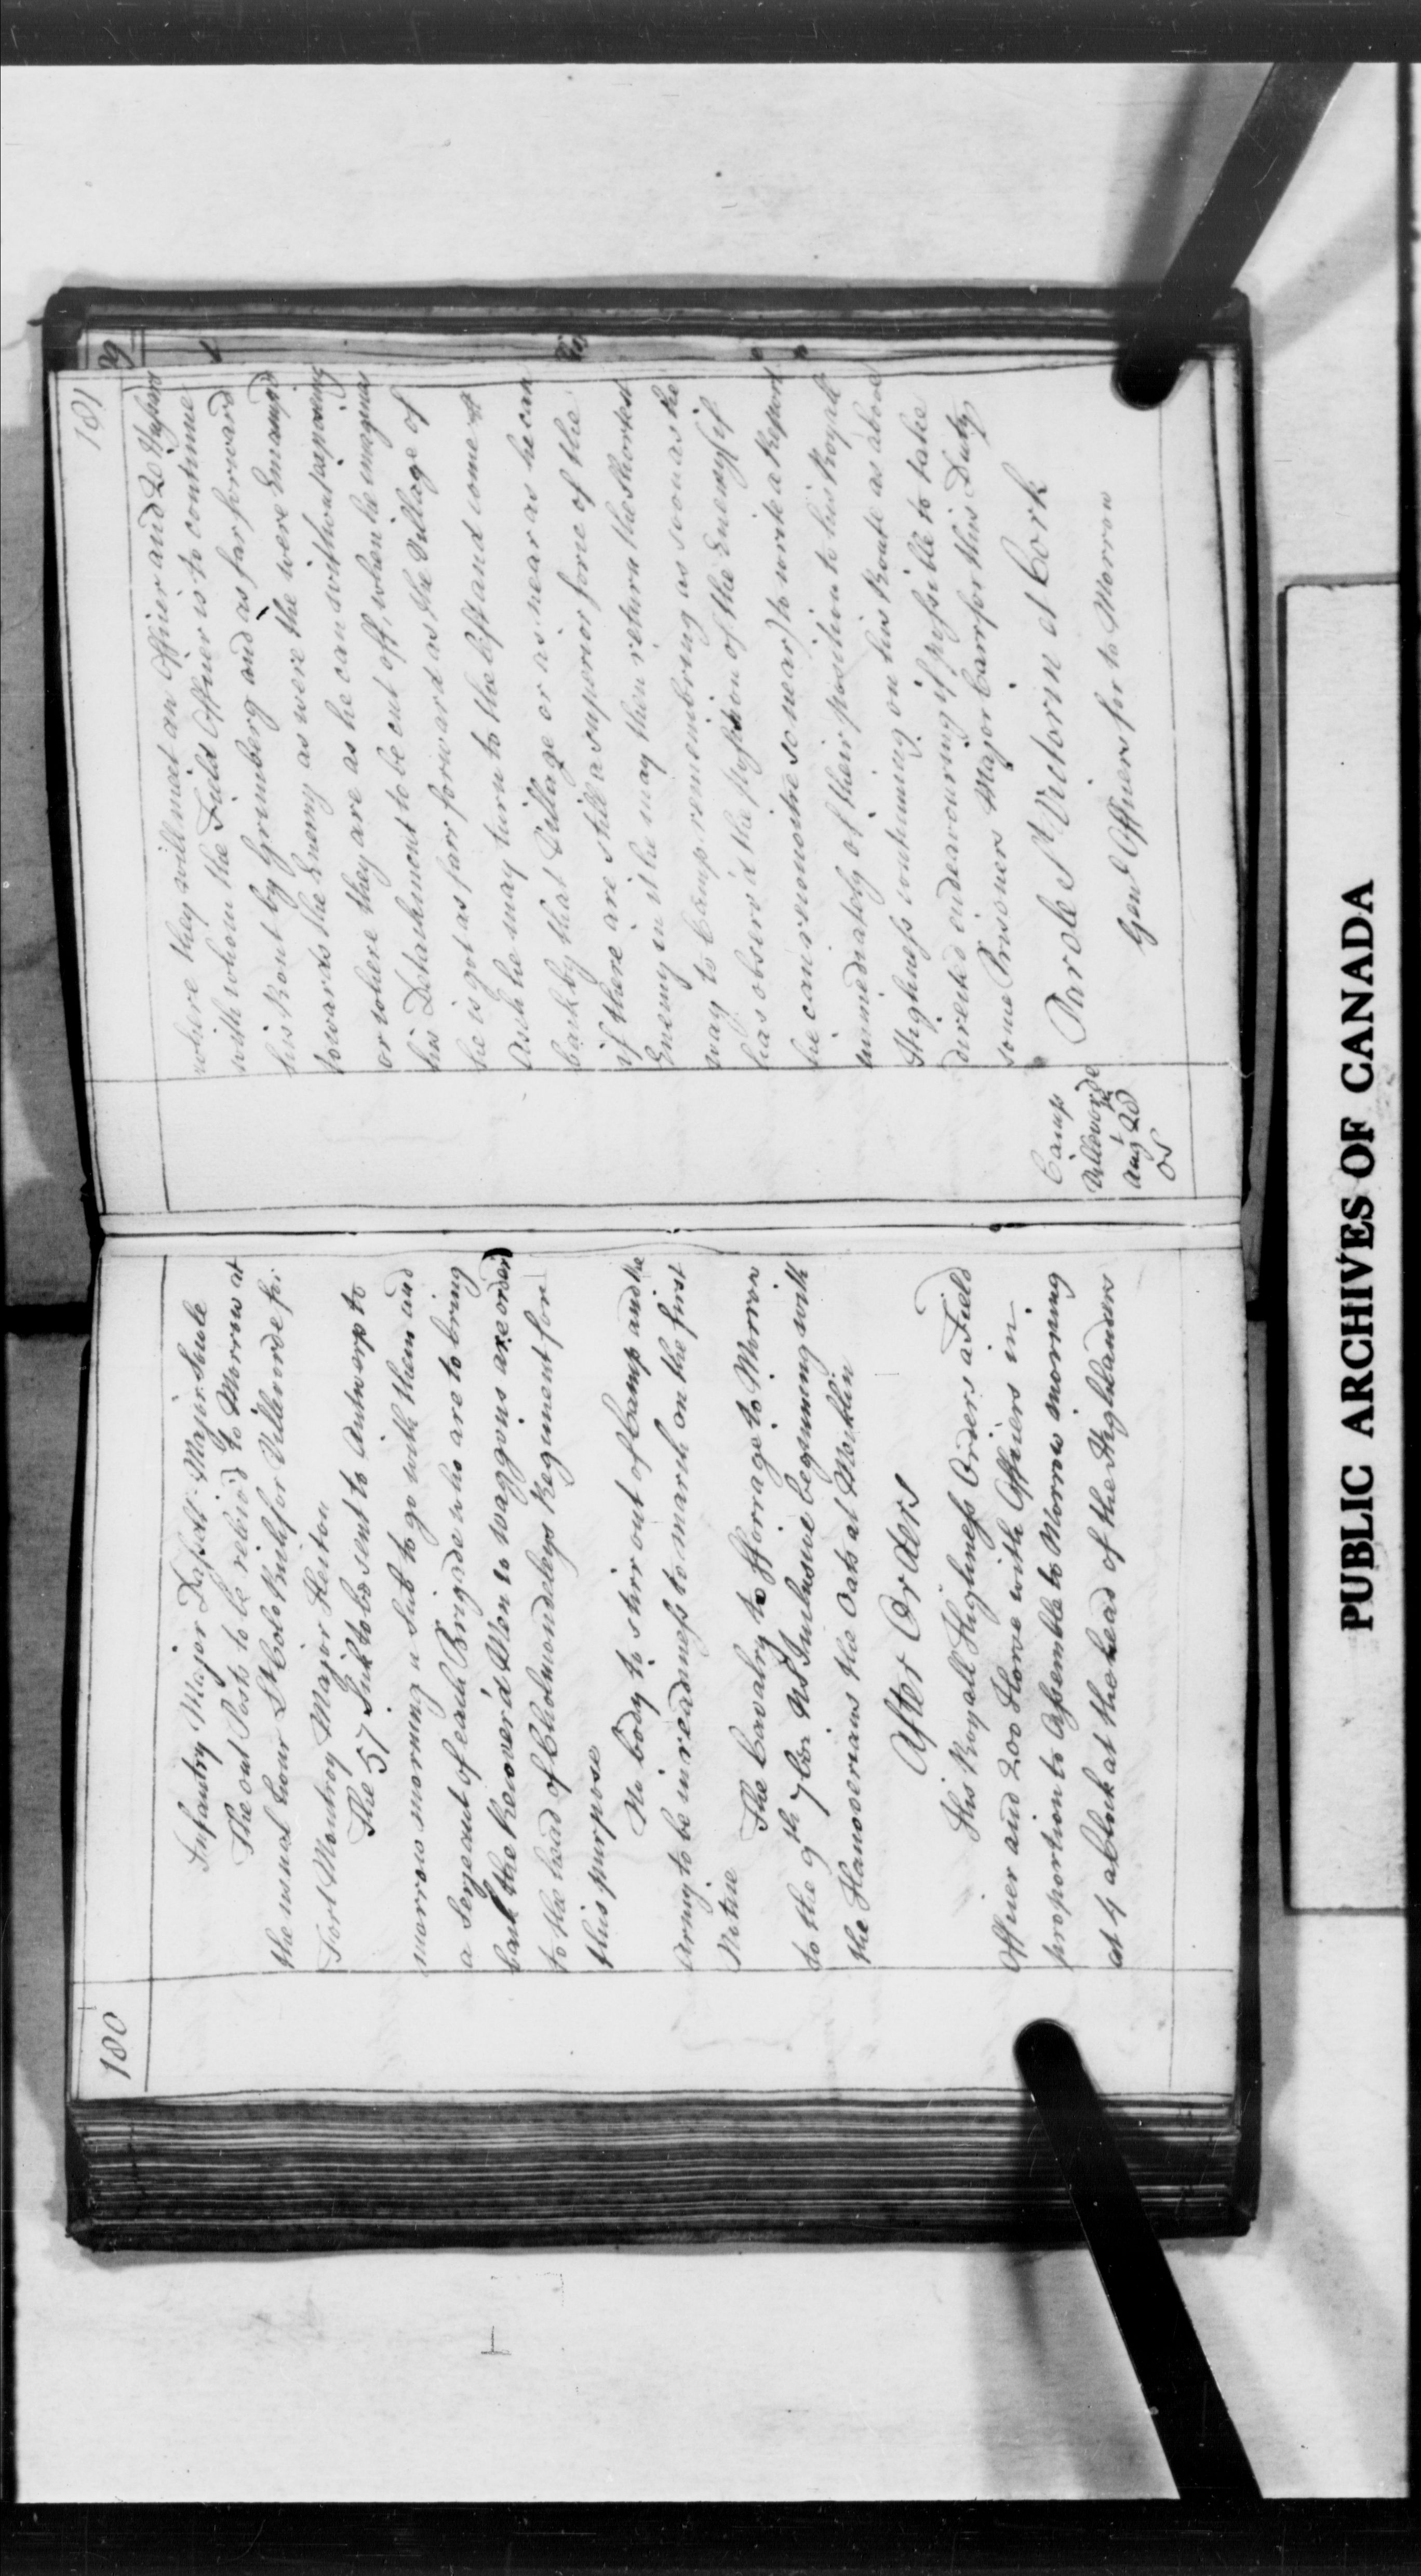 180
Infantry Major Major Soule
The out Posts to be reliev'd to Morrow at
the usual hour Lt Colo for Villvorde for
Fort Montroy Major Heiton
The 57 Sick to be sent to Antwerp to
morrow morning a Sub to go with them and
a Serjeant of each Brigade who are to bring
back the Recover'd Men 10 waggons are order'd
to the head of Cholmondeleys Regiment for
this purpose
No body to stirr out of Camp and the
Army to be in readiness to march on the first
Notice
The Cavalry to fforrage to Morrow
to the 9th 7br NS Inclusive beginning with
the Hanoverians the Oats at Mechlin
After Orders
His Royall Highness Orders a Field
Officer and 200 Horse with Officers in
proportion to Assemble to Morrow morning
at 4 aClock at the head of the Highlanders
181
where they will meet an Officer and 20 Hussars
with whom the Field Officer is to continue
his Rout by Grimberg and as far forward
towards the Enemy as were the were Encamp'd
or where they are as he can without exposeing
his Detachment to be cut off, when he imagines
he is got as farr forward as the Village of
Asch he may turn to the left and come
back by that Village or as near as he can
if there are still a superior force of the
Enemy in it he may then return the shortest
way to Camp remembring as soon as he
has observ'd the position of the Enemy (if
he can remonoitre so near) to write a Report
immediately of their position to his Royall
Highness continuing on his Route as above
directed endeavouring if possible to take
some Prisoners Major Carr for this Duty
Camp
Villvorde
Augt 28
OS
Parole St Victorin et Cork
Genl Officers for to Morrow
PUBLIC ARCHIVES OF CANADA